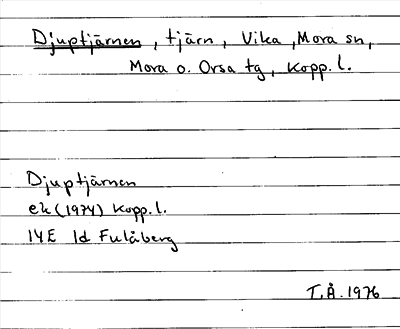 Djuptjärnen, tjärn, Vika, Mora sn,
Mora o. Orsa tg, Kopp. l.
Djuptjärnen
ek (1974) Kopp. l.
14E 1d Fulåberg
T.Å. 1976